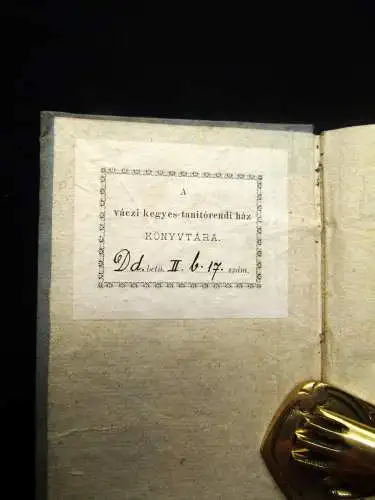 A
váczi kegyes-tanitórendi ház
KÖNYVTÁRA.
Dd. betű. II. b. 17. szám.